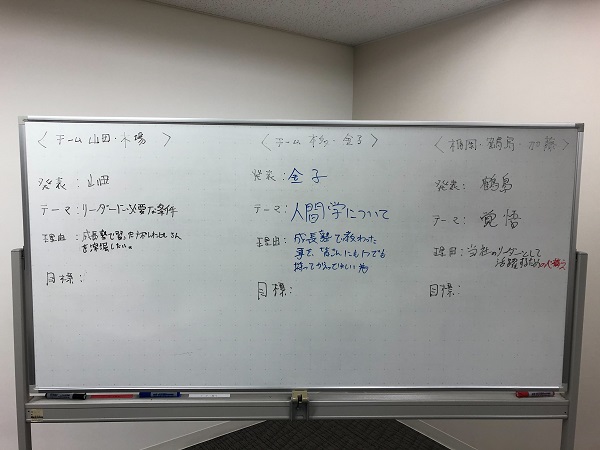 〈チーム 山田・木場 〉
発表:山田
テーマ:リーダーに必要な条件
理由:成長塾で習った
を深掘したい。
目標:
〈チーム 金子〉
発表:金子
テーマ:人間学について
理由:成長塾で教わった
事を、皆さんにも1つでも
持ってかえってほしい為
目標:
〈 ・鶴島・加藤〉
発表:鶴島
テーマ:覚悟
理由:当社のリーダーとして
活躍するための心構え
目標: